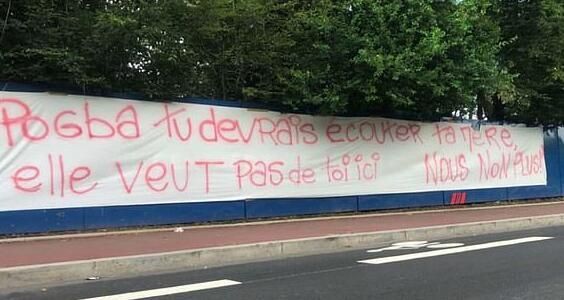 Pogba tu devrais écouter ta mère,
elle veut pas de toi ici nous non plus!